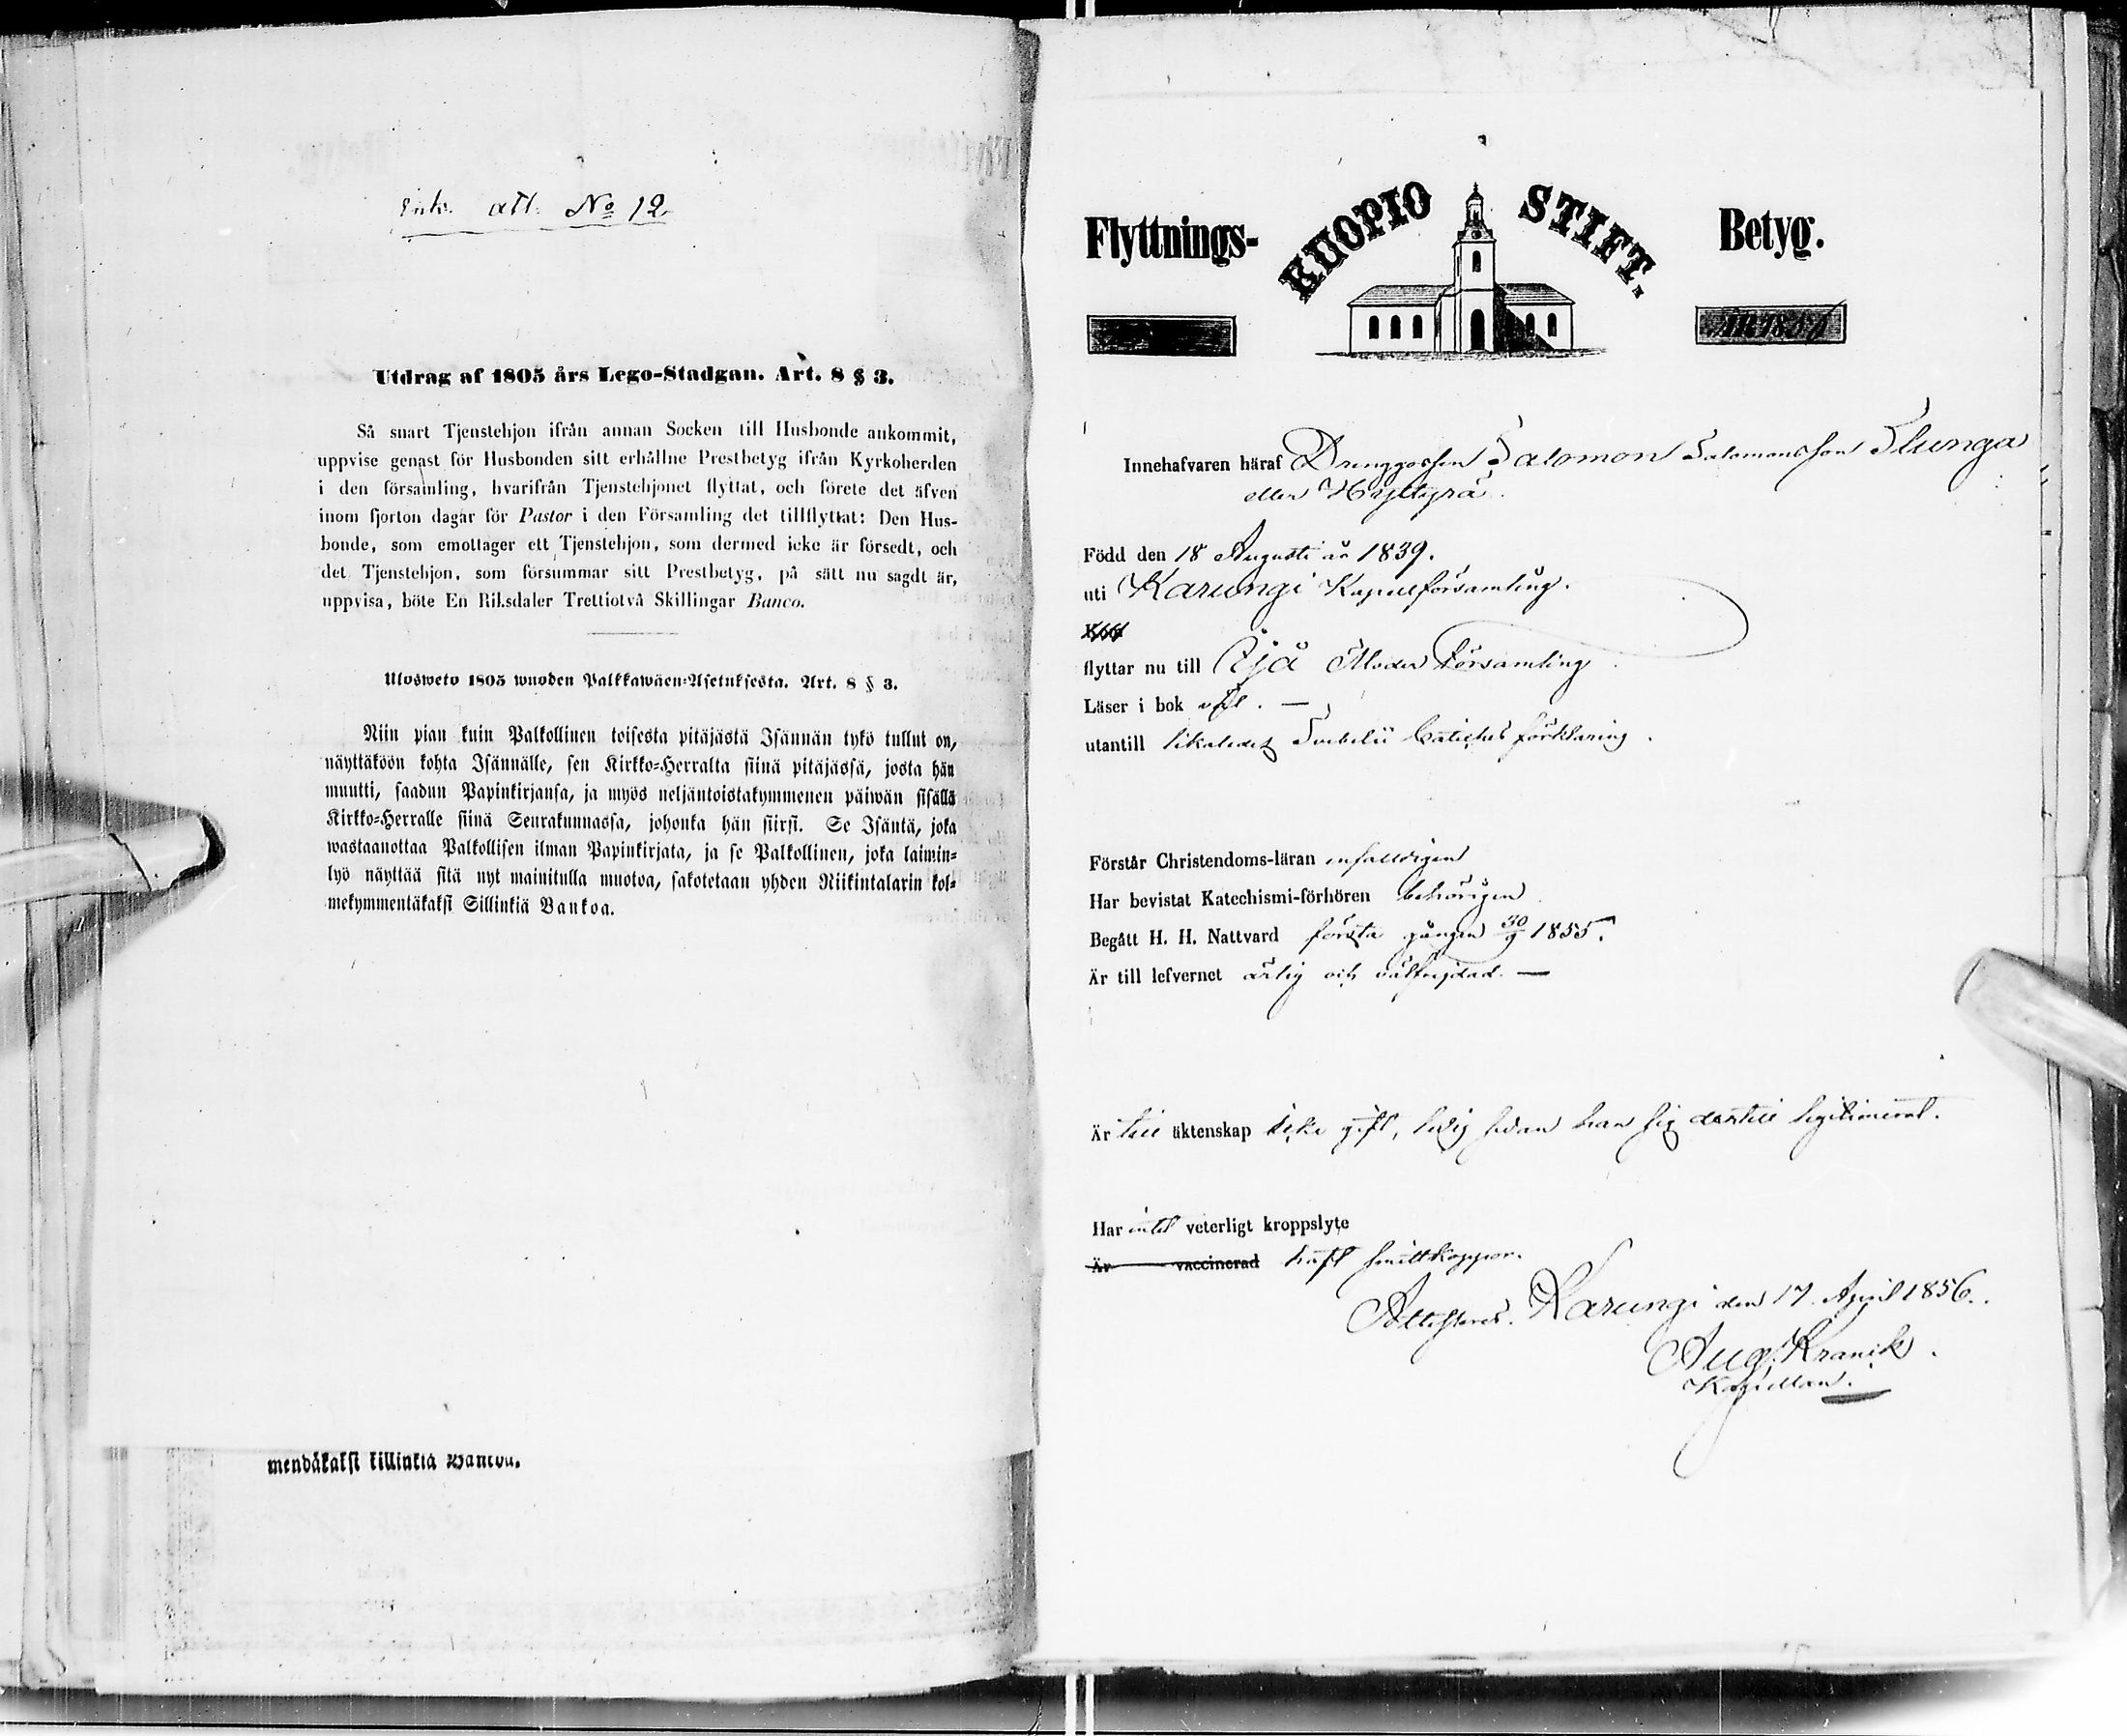 att: No 12
Utdrag af 1805 års Lego-Stadgan. Art. 8 § 3.
Så snart Tjenstehjon ifrån annan Socken till Husbonde ankommit,
uppvise genast för Husbonden sitt erhållne Prestbetyg ifrån Kyrkoherden
i den församling, hvarifrån Tjenstehjonet flyttat, och förete det äfven
inom fjorton dagar för Pastor i den Församling det tillflyttat: Den Hus-
bonde, som emottager ett Tjenstehjon, som dermed icke är försedt, och
det Tjenstehjon, som försummar sitt Prestbetyg, på sätt nu sagdt är,
uppvisa, böte En Riksdaler Trettiotvå Skillingar Banco.
Ulosweto 1805 wuoden Palkkawäen-Asetuksesta. Art. 8 § 3.
Niin pian kuin Palkollinen toisesta pitäjästä Isännän tykö tullut on,
näyttäköön kohta Isännälle, sen Kirkko-Herralta siinä pitäjässä, josta hän
muutti, saadun Papinkirjansa, ja myös neljäntoistakymmenen päiwän sisällä
Kirkko-Herralle siinä Seurakunnassa, johonka hän siirsi. Se Isäntä, joka
wastaanottaa Palkollisen ilman Papinkirjata, ja se Palkollinen, joka laimin-
lyö näyttää sitä nyt mainitulla muotoa, sakotetaan yhden Riikintalarin kol-
mekymmentäkaksi Sillinkiä Bankoa.
mendäkaksi killinkiä Bancoa.
Flyttnings- KUOPIO STIFT. Betyg.
ÅR 185
Innehafvaren häraf Drenggossen Salomon Salomonsson Slunga
eller Hyltyrä.
Född den 18 Augusti år 1839.
uti Karungi Kapellförsamling.
flyttar nu till Moder församling
Läser i bok väl. —
utantill likaledes Svebelii förklaring.
Förstår Christendoms-läran enfaldigen
Har bevistat Katechismi-förhören behörigen
Begått H. H. Nattvard första gången 30/9 1855.
Är till lefvernet ärlig och välfrejdad. —
Är till äktenskap icke gift, ledig sedan han sig dertill legitimerat.
Har intet veterligt kroppslyte
Är vaccinerad haft smittkoppor.
Attesteras. Karungi den 17. April 1856.
Aug. Kranck.
Kapellan.